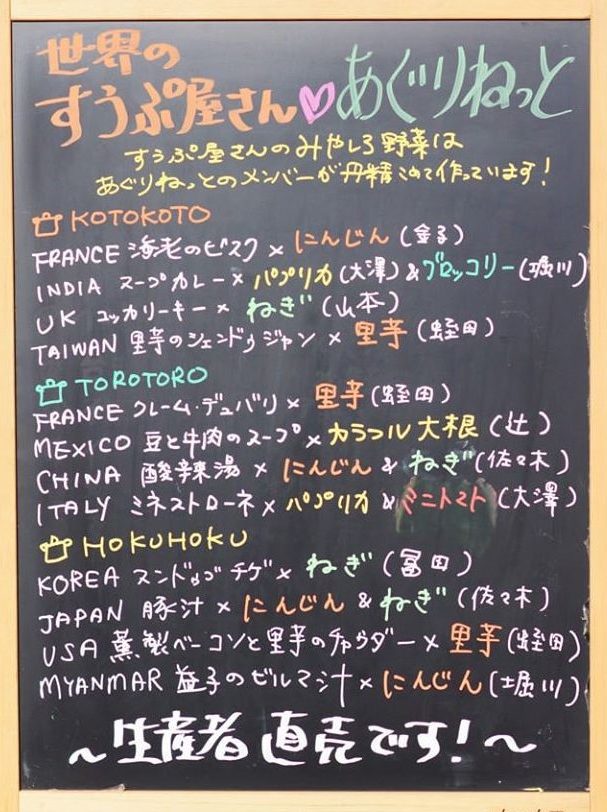 世界の
すうぷ屋さん♡あぐりねっと
すうぷ屋さんのみやしろ野菜は
あぐりねっとのメンバーが丹精こめて作っています!
KOTOKOTO
FRANCE 海老のビスク × にんじん (金子)
INDIA スープカレー × パプリカ (大澤) & ブロッコリー (堀川)
UK コッカリーキー × ねぎ (山本)
TAIWAN 里芋のシェンドゥジャン × 里芋 (蛭田)
TOROTORO
FRANCE クレーム・デュバリ × 里芋 (蛭田)
MEXICO 豆と牛肉のスープ × カラフル大根 (辻)
CHINA 酸辣湯 × にんじん & ねぎ (佐々木)
ITALY ミネストローネ × パプリカ & ミニトマト (大澤)
HOKUHOKU
KOREA スンドゥブチゲ × ねぎ (冨田)
JAPAN 豚汁 × にんじん & ねぎ (佐々木)
USA 薫製ベーコンと里芋のチャウダー × 里芋 (蛭田)
MYANMAR 益子のビルマ汁 × にんじん (堀川)
~生産者直売です!~